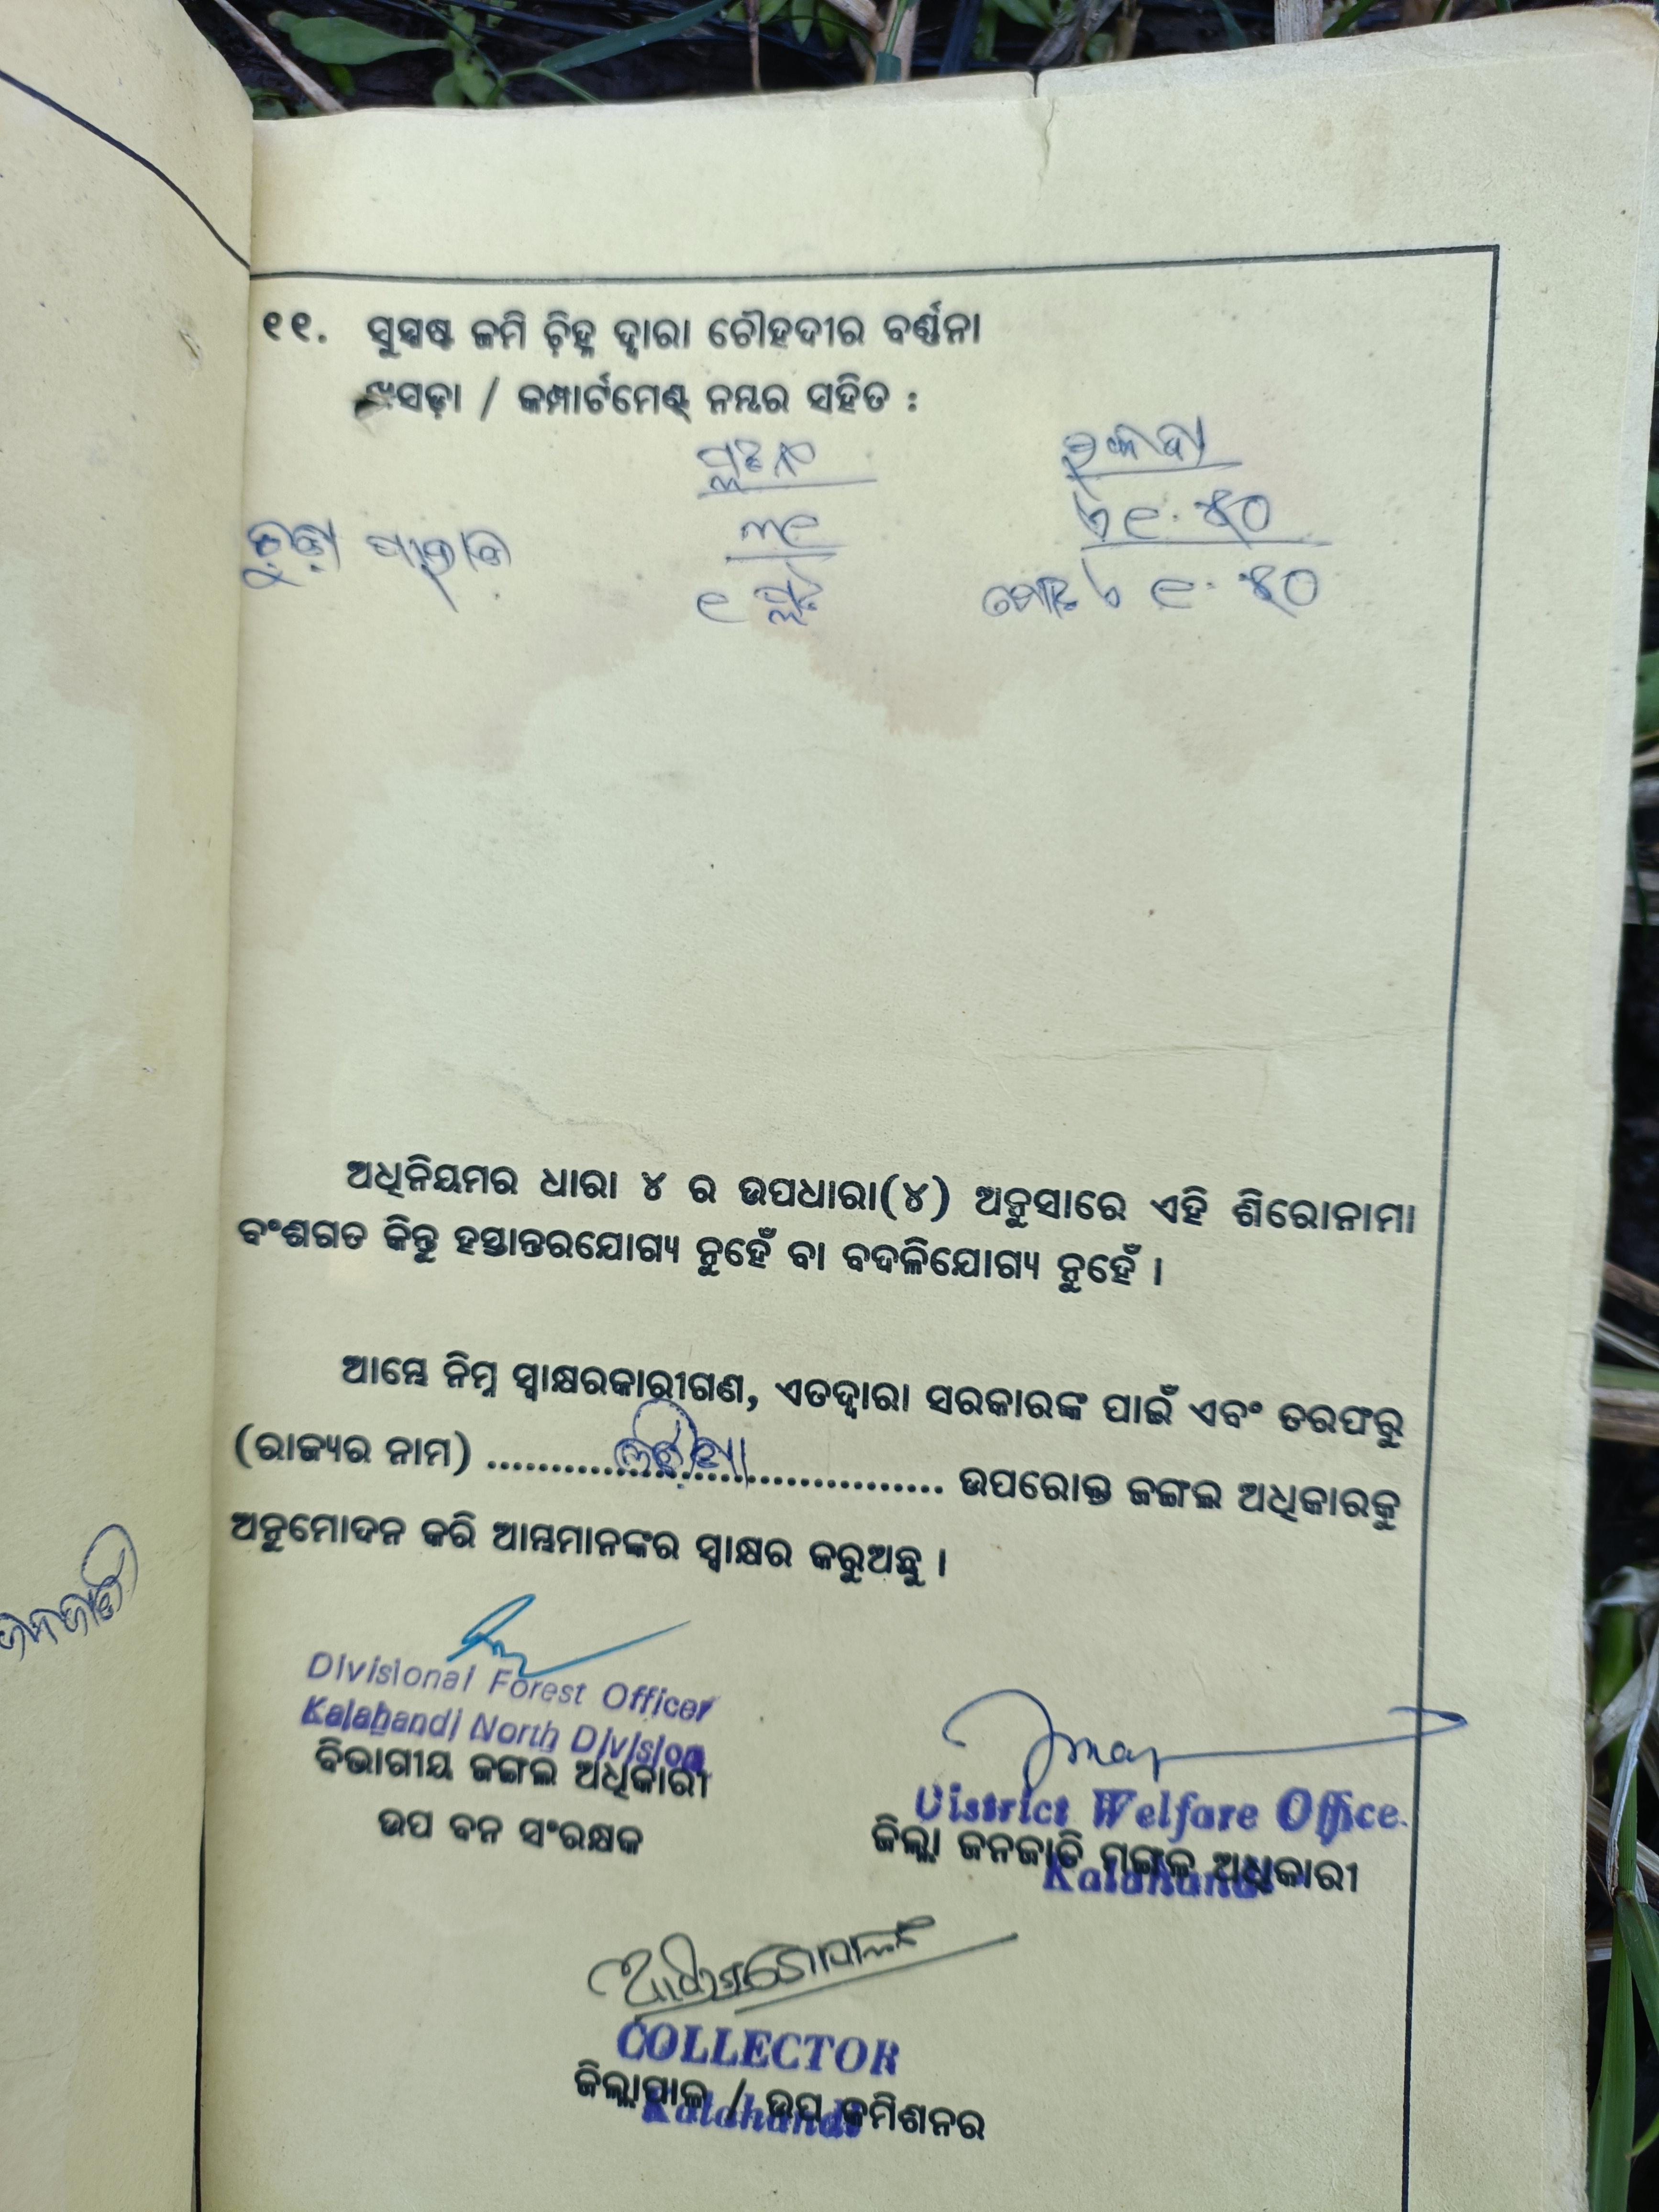 ୧୧. ସୁସ୍ପଷ୍ଟ ଜମି ଚିହ୍ନ ଦ୍ୱାରା ଚୌହଦୀର ବର୍ଣ୍ଣନା
ଖସଡ଼ା / କମ୍ପାର୍ଟମେଣ୍ଟ ନମ୍ବର ସହିତ :
ପ୍ଲଃ ନଂ ରକବା
୩୧ ୧.୫୦
୧ ପ୍ଲଃ ମୋଃ ୧.୫୦
ଅଧିନିୟମର ଧାରା ୪ ର ଉପଧାରା(୪) ଅନୁସାରେ ଏହି ଶିରୋନାମା
ବଂଶଗତ କିନ୍ତୁ ହସ୍ତାନ୍ତରଯୋଗ୍ୟ ନୁହେଁ ବା ବଦଳିଯୋଗ୍ୟ ନୁହେଁ ।
ଆମ୍ଭେ ନିମ୍ନ ସ୍ୱାକ୍ଷରକାରୀଗଣ, ଏତଦ୍ୱାରା ସରକାରଙ୍କ ପାଇଁ ଏବଂ ତରଫରୁ
(ରାଜ୍ୟର ନାମ) ........ଓଡ଼ିଶା........ ଉପରୋକ୍ତ ଜଙ୍ଗଲ ଅଧିକାରକୁ
ଅନୁମୋଦନ କରି ଆମ୍ଭମାନଙ୍କର ସ୍ୱାକ୍ଷର କରୁଅଛୁ ।
ଜନଜାତି
Divisional Forest Officer
Kalahandi North Division
ବିଭାଗୀୟ ଜଙ୍ଗଲ ଅଧିକାରୀ
ଉପ ବନ ସଂରକ୍ଷକ
District Welfare Office.
ଜିଲ୍ଲା ଜନଜାତି ମଙ୍ଗଳ ଅଧିକାରୀ
Kalahandi
COLLECTOR
ଜିଲ୍ଲାପାଳ / ଉପ କମିଶନର
Kalahandi